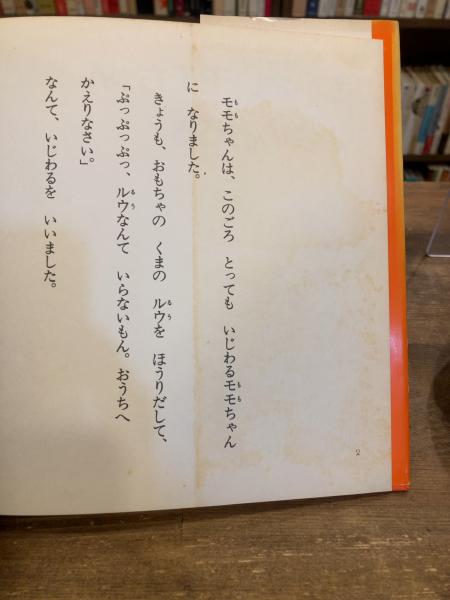 モモちゃんは、このごろ とっても いじわるモモちゃん
に なりました。
きょうも、おもちゃの くまの ルウを ほうりだして、
「ぷっぷっぷっ、ルウなんて いらないもん。おうちへ
かえりなさい。」
なんて、いじわるを いいました。
2